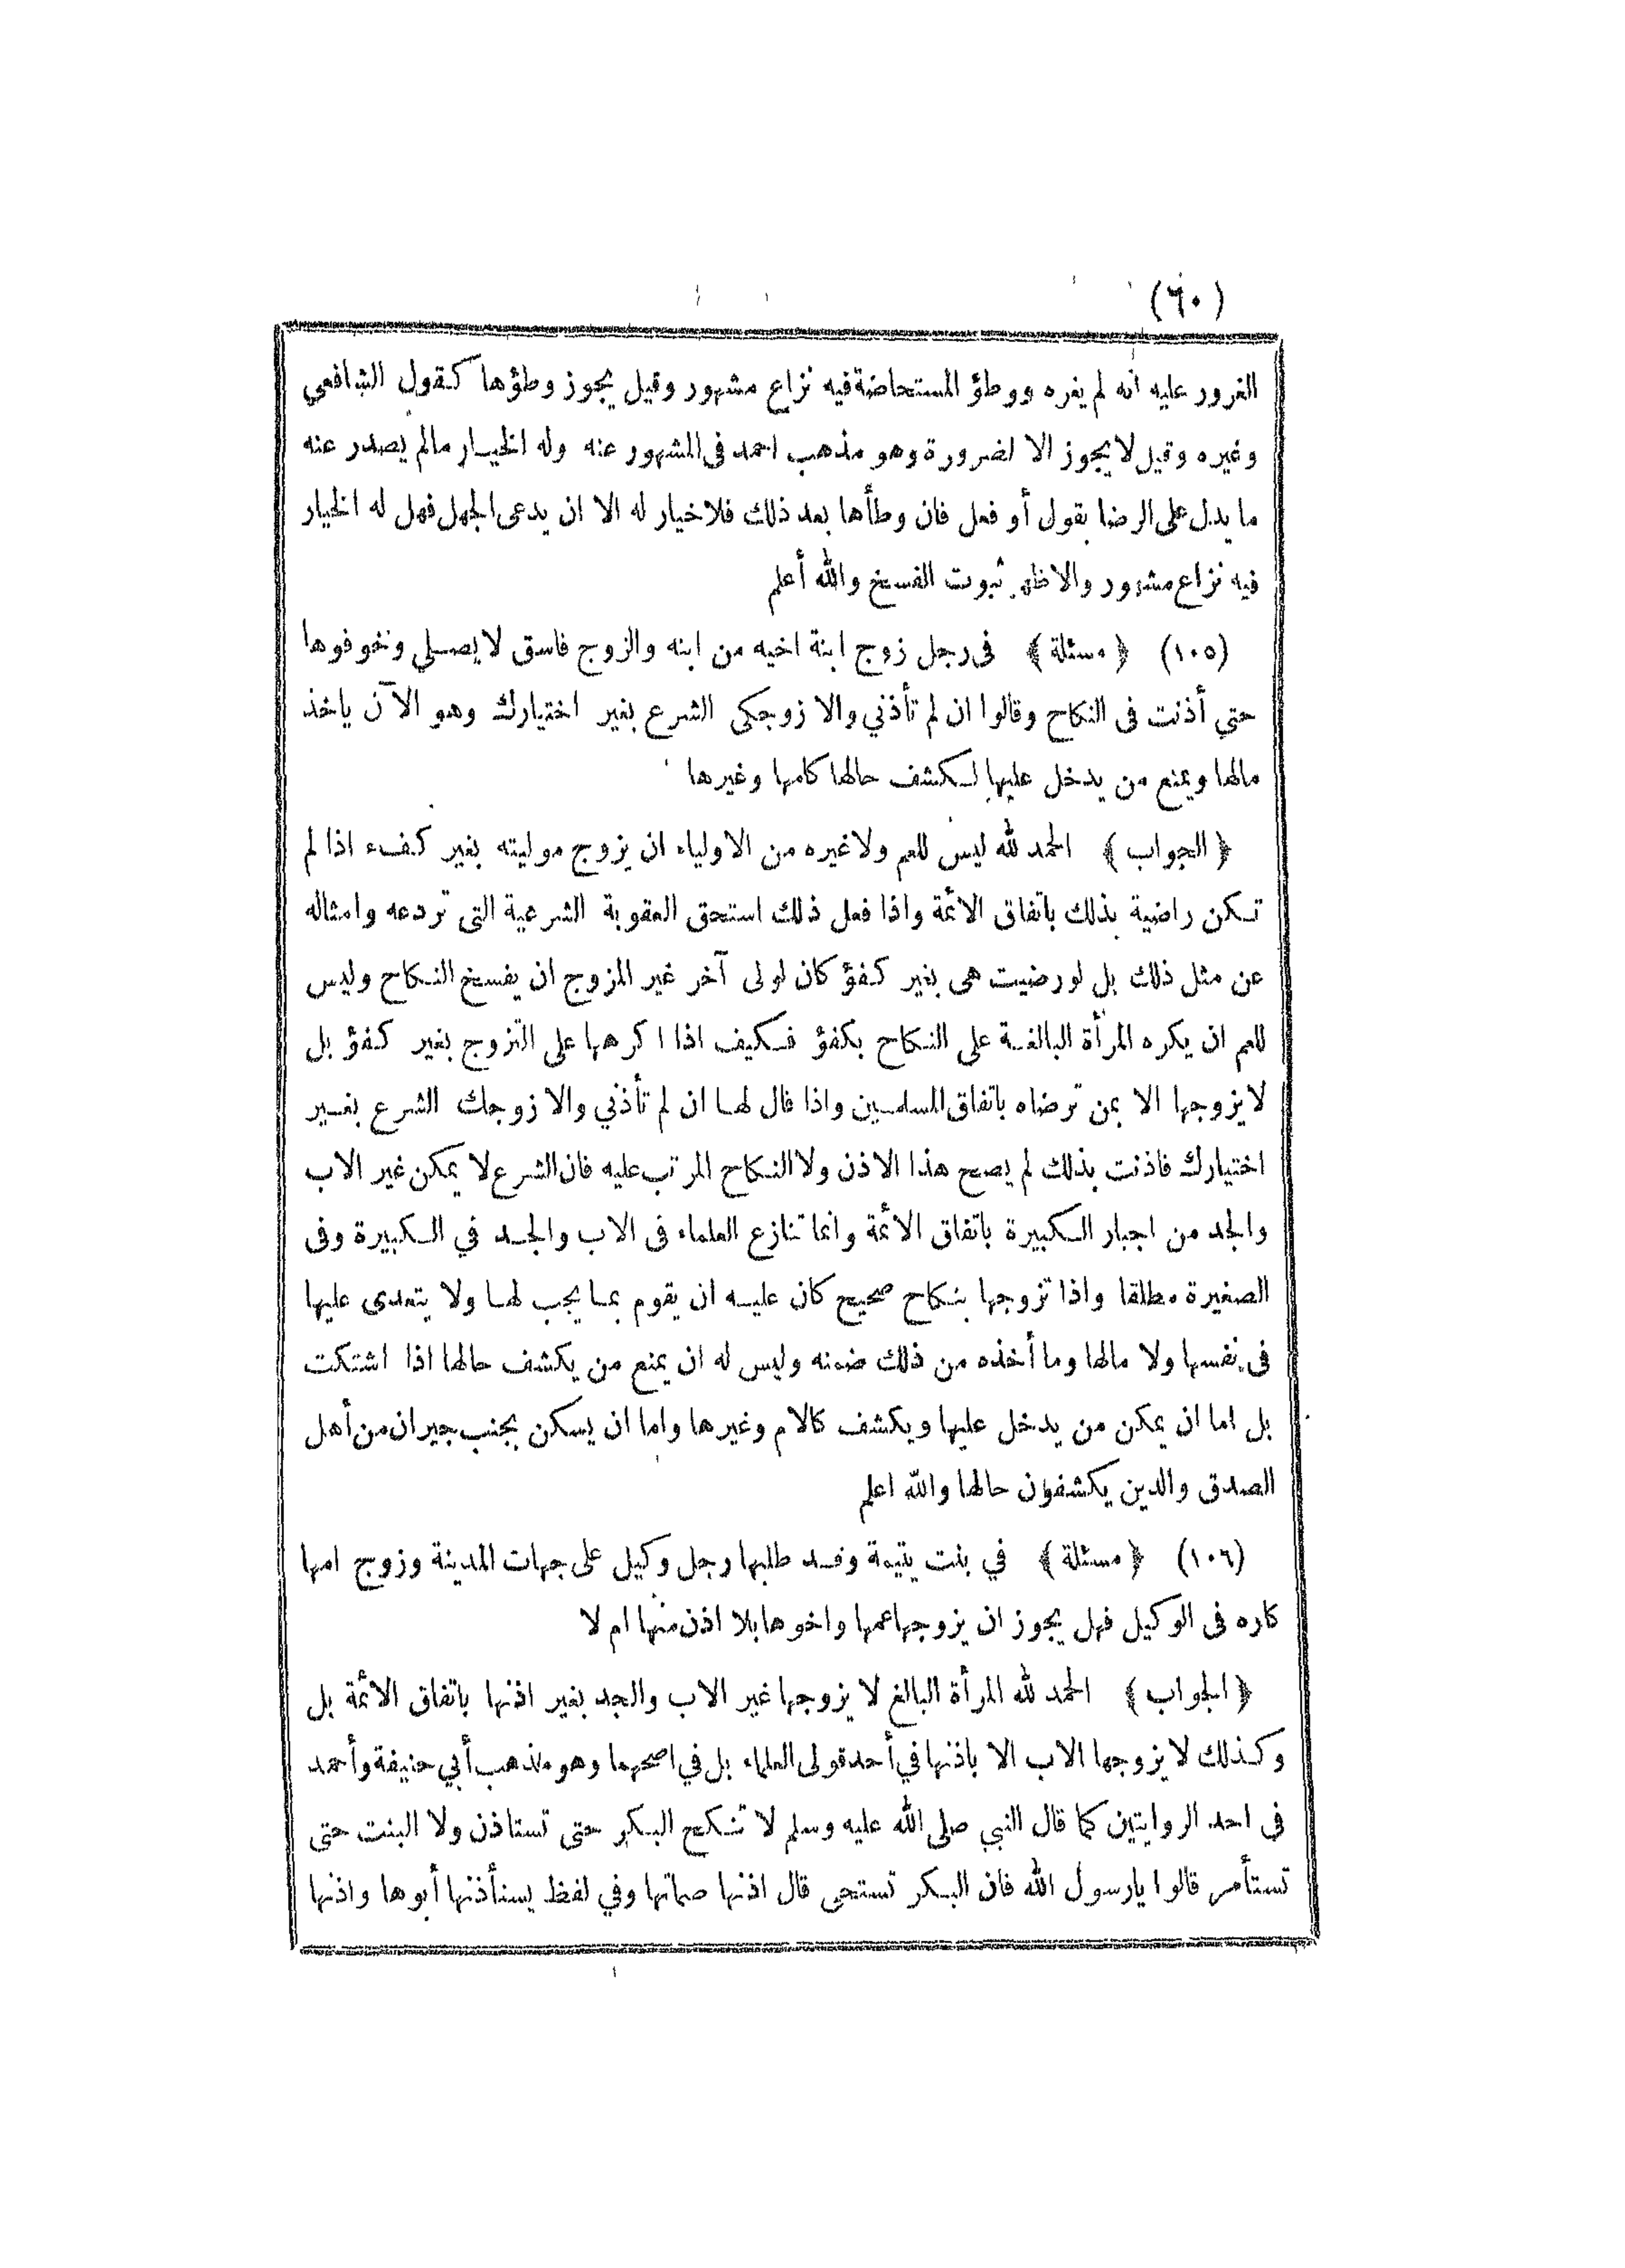 (٦٠)
الغرور عليه انه لم يغره ووطؤ المستحاضة فيه نزاع مشهور وقيل يجوز وطؤها كقول الشافعي
وغيره وقيل لا يجوز الا لضرورة وهو مذهب احمد في المشهور عنه وله الخيار مالم يصدر عنه
ما يدل على الرضا بقول أو فعل فان وطأها بعد ذلك فلا خيار له الا ان يدعى الجهل فهل له الخيار
فيه نزاع مشهور والاظهر ثبوت الفسخ والله أعلم
(١٠٥) ﴿ مسئلة ﴾ فى رجل زوج ابنة اخيه من ابنه والزوج فاسق لا يصلي وخوفوها
حتي أذنت فى النكاح وقالوا ان لم تأذني والا زوجكى الشرع بغير اختيارك وهو الآن ياخذ
مالها ويمنع من يدخل عليها لكشف حالها كامها وغيرها
﴿ الجواب ﴾ الحمد لله ليس للعم ولا غيره من الاولياء ان يزوج موليته بغير كفء اذا لم
تكن راضية بذلك باتفاق الائمة واذا فعل ذلك استحق العقوبة الشرعية التى تردعه وامثاله
عن مثل ذلك بل لو رضيت هى بغير كفؤ كان لولى آخر غير المزوج ان يفسخ النكاح وليس
للعم ان يكره المرأة البالغة على النكاح بكفؤ فكيف اذا اكرهها على التزوج بغير كفؤ بل
لا يزوجها الا بمن ترضاه باتفاق المسلمين واذا قال لها ان لم تأذني والا زوجك الشرع بغير
اختيارك فاذنت بذلك لم يصح هذا الاذن ولا النكاح المرتب عليه فان الشرع لا يمكن غير الاب
والجد من اجبار الكبيرة باتفاق الائمة وانما تنازع العلماء فى الاب والجد في الكبيرة وفى
الصغيرة مطلقا واذا تزوجها بنكاح صحيح كان عليه ان يقوم بما يجب لها ولا يتعدى عليها
فى نفسها ولا مالها وما أخذه من ذلك ضمنه وليس له ان يمنع من يكشف حالها اذا اشتكت
بل اما ان يمكن من يدخل عليها ويكشف كالام وغيرها واما ان يسكن بجنب جيران من أهل
الصدق والدين يكشفون حالها والله اعلم
(١٠٦) ﴿ مسئلة ﴾ في بنت يتيمة وقد طلبها رجل وكيل على جهات المدينة وزوج امها
كاره فى الوكيل فهل يجوز ان يزوجها عمها واخوها بلا اذن منها ام لا
﴿ الجواب ﴾ الحمد لله المرأة البالغ لا يزوجها غير الاب والجد بغير اذنها باتفاق الائمة بل
وكذلك لا يزوجها الاب الا باذنها في أحد قولى العلماء بل في اصحهما وهو مذهب أبي حنيفة وأحمد
فى احد الروايتين كما قال النبي صلى الله عليه وسلم لا تنكح البكر حتى تستاذن ولا البنت حتى
تستأمر قالوا يا رسول الله فان البكر تستحى قال اذنها صماتها وفي لفظ يستأذنها أبوها واذنها